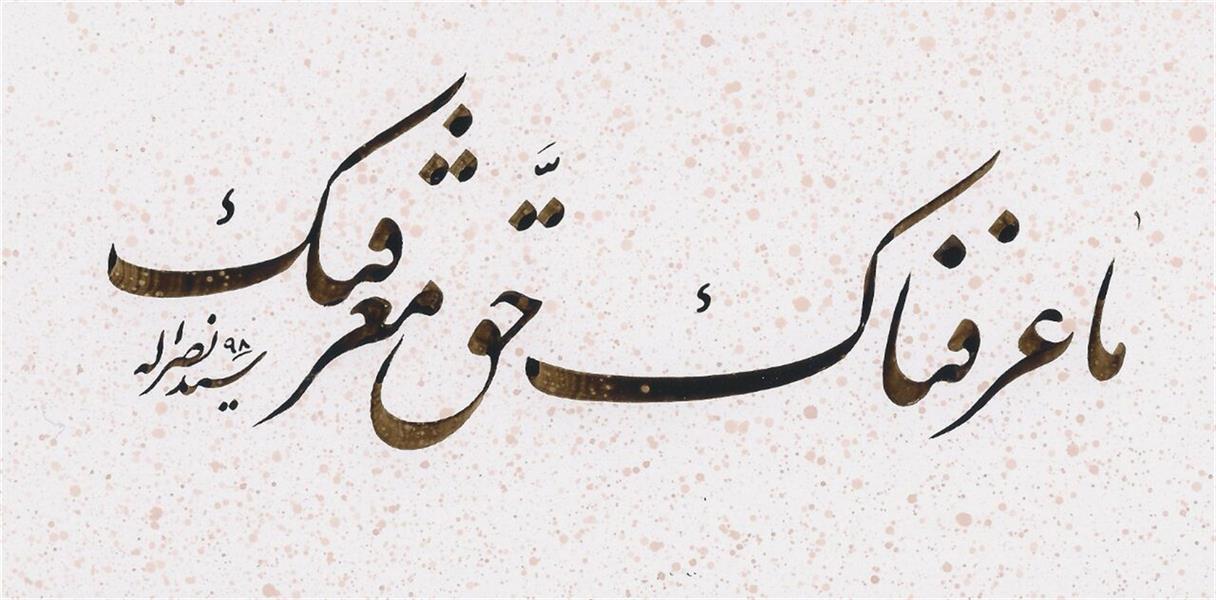 ما عرفناک حقّ معرفتک
سید نصراله ۹۸